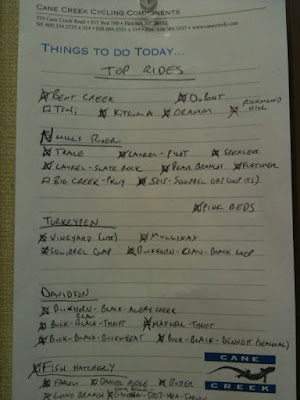 CANE CREEK CYCLING COMPONENTS
355 Cane Creek Road • P.O. Box 798 • Fletcher, NC 28732
www.canecreek.com
THINGS TO DO TODAY...
TOP RIDES
BENT CREEK DUPONT
KITSUMA ORAMM RICHMOND HILL
MILLS RIVER
TRACE LAUREL-PILOT SPENCER
LAUREL-SLATE ROCK BEAR BRANCH FLETCHER
BIG CREEK-PKWY 5015-SQUIRREL GAP
PINK BEDS
TURKEYPEN
VINEYARD MULLINAX
SQUIRREL GAP BUCKHORN-BLACK LOOP
DAVIDSON
BUCKHORN-BLACK-AVERY CREEK
BUCK-BLACK-THRIFT MAXWELL-THRIFT
BUCK-BLACK-BUCKWHEAT BUCK-BLACK-BENNETT (SEASONAL)
FISH HATCHERY
FARLOW DANIEL RIDGE BUTTER
LONG BRANCH
CANE
CREEK